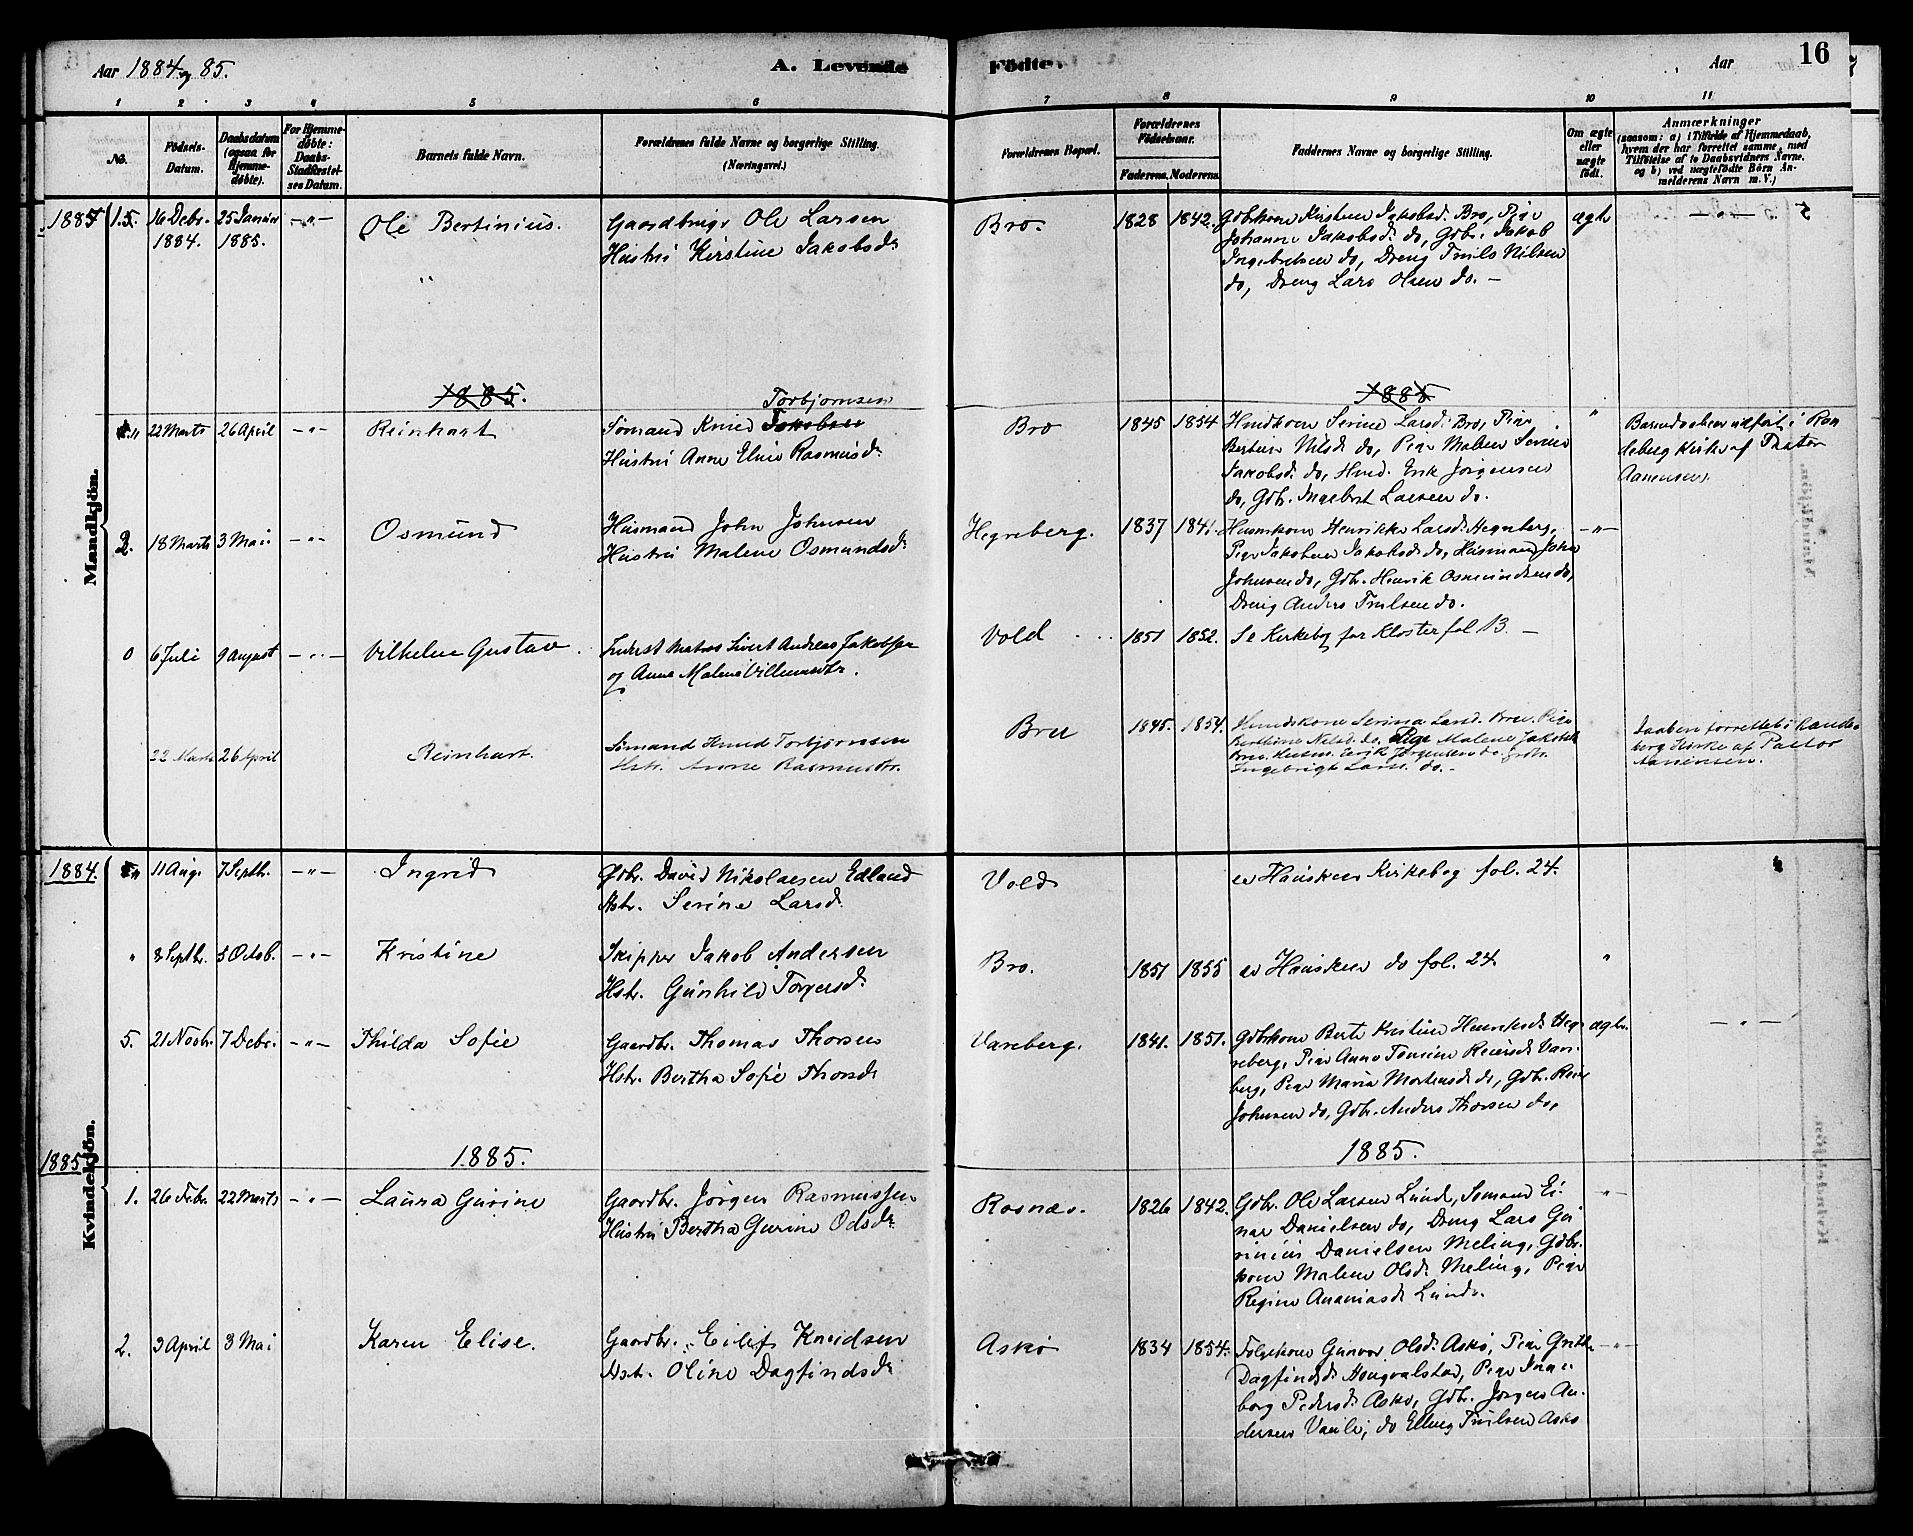 Aar 1884 og 85.
A. Levende Födte.
Aar
16
1 2 3 4 5 6 7 8 9 10 11
No.
Födsels-Datum.
Daabsdatum (ogsaa for Hjemmedöbte).
For Hjemmedöbte: Daabs-Stadfæstelses Datum.
Barnets fulde Navn.
Forældrenes fulde Navne og borgerlige Stilling. (Næringsvei.)
Forældrenes Bopæl.
Forældrenes Födselsaar.
Faderens. Moderens.
Faddernes Navne og borgerlige Stilling.
Om ægte eller uægte födt.
Anmærkninger
(saasom: a) i Tilfælde af Hjemmedaab, hvem der har forrettet samme, med Tilföielse af to Daabsvidners Navne, og b) ved uægtefödte Börn Anmelderens Navn m. V.)
Mandkjön.
15. 16 Debr. 1884. 25 Januar 1885. —"— Ole Bertinius.
Gaardbrugr Ole Larsen
Hustru Kirstine Jakobsdr
Bro. 1828 1842.
Gdbrkone Kirsteen Jakobsd. Bro, Pige
Johanne Jakobsd. do, Gdbr. Jakob
Ingebretsen do, Dreng Truls Nilsen
do, Dreng Lars Olsen do. —
ægte —"—
1885. 1885
22 Marts 26 April —"— Reinhart
Torbjørnsen
Sömand Knud Jakobsen
Hustru Anne Elise Rasmusdr
Bro 1845 1854
Huuskone Serine Larsd. Bro, Pige
Bertine Nilsd. do, Pige Malene Serine
Jakobsd. do, Husd. Erik Jörgensen
do, Gdbr. Ingebret Larsen do.
"
Barnedaaben udført i Ren
deberg Kirke af Pastor
Aanensen.
2. 18 Marts 3 Mai. —"— Osmund
Husmand John Johnsen
Hustru Malene Osmundsdr
Hegreberg. 1837 1841.
Huuskone Henrikke Larsd. Hegreberg,
Pige Jakobine Jakobsd. do, Husmand John
Johnsen do, Gdbr. Henrik Osmundsen do,
Dreng Anders Trulsen do.
—"—
0 6 Juli 9 August —"— Vilhelm Gustav
Sivert Andreas Jakobsen
og Anne Malene Villumsdtr.
Vold 1851 1852. Se Kirkebog for Kloster fol 13. —
22 Marts 26 April Reinhart.
Sömand Knud Torbjørnsen
Hstr. Anne Rasmusdtr.
Bru 1845. 1854.
Huuskone Serine Larsd. Bru. Pige
Berthine Nilsd. do. Pige Malene Jakobsd.
Bru. Husm. Erik Jörgensen do. Gdbr.
Ingebrigt Lars. do. —
Daaben forrettet i Rande-
berg Kirke af Pastor
Aanensen.
Kvindekjön.
1884. 11 Aug. 7 Septb. —"— Ingrid
Gdbr. David Nikolaesen Edland
Hstr. Serine Larsd.
Vold se Hauskens Kirkebog fol. 24.
" 8 Septbr. 5 Octob. —"— Kristine
Skipper Jakob Andersen
Hstr. Gunhild Torgersdr
Bro. 1851 1855 se Hausken do fol. 24. "
5. 21 Novbr. 7 Debr. —"— Thilda Sofie
Gaardbr. Thomas Thorsen
Hstr. Bertha Sofie Thorsdr
Vareberg. 1841. 1851.
Gdbrkone Berte Kristine Henriksd. Heg-
reberg, Pige Anne Tomine Reiersd. Vare-
berg, Pige Maria Mortensd. do, Gdbr. Reier
Johnsen do, Gdbr. Anders Thorsen do,
ægte. —"—
1885 1885. 1885.
1. 26 Febr. 22 Marts —"— Laura Gurine
Gaardbr. Jörgen Rasmussen
Hustru Bertha Gurine Odsdr
Rosnæs. 1826 1842.
Gdbr. Ole Larsen Lunde, Sömand Ei-
nar Danielsen do, Dreng Lars Gu
rinius Danielsen Meling, Gdbr.
kone Malene Olsd. Meling, Pige
Regine Ananiasdr Lunde.
—"—
2. 3 April 3 Mai Karen Elise.
Gaardbr. Eilef Knudsen
Hstr. Oline Dagfindsdr
Askö 1834 1854.
Følgekone Gunvor Olsd. Askö, Pige Grethe
Dagfindsd. Haugvalstad, Pige Inge-
borg Pedersd. Askö, Gdbr. Jörgen An-
dersen Vaule, do Elling Trulsen Askö
—"—